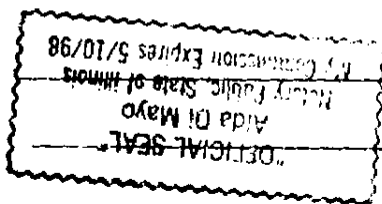 "OFFICIAL SEAL"
Aida Di Mayo
Notary Public, State of Illinois
My Commission Expires 5/10/98